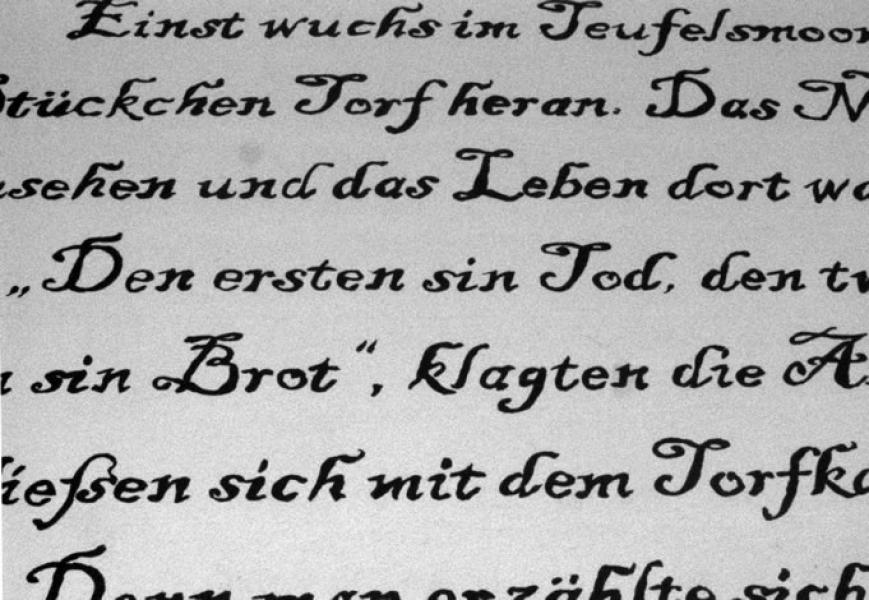 Einst wuchs im Teufelsmoor
Stückchen Torf heran. Das
sehen und das Leben dort
„Den ersten sin Tod, den
sin Brot“, klagten die
ießen sich mit dem Torfk
Denn man erzählte sich